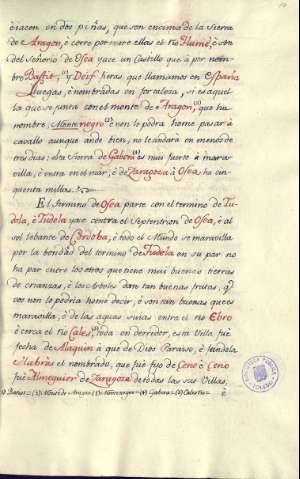 è iacen en dos piñas, que son encima de la Sierra
de Aragon, è corre por entre ellas el rio Flumẽ, è son
del Señorio de Osca yace un Castillo que à por nom-
bre Baffit, (1) y Deis f peras que llamamos en España
Luegas, è nombradas en fortaleza, si es aquel
la que se junta con el monte de Aragon, (2) que ha
nombre, Monte negro (3) è non lo podra home pasar à
cavallo aunque ande bien, no le andará en menos de
tres dias: otra Sierra de Gabera (4) es muy fuerte à mara-
villa, è entra en el mar, è de Zaragoza à Osca ha cin-
quenta millas.
El termino de Osca parte con el termino de Tu-
dela, è Tudela yace contra el Septentrion de Osca, è al
sol lebante de Cordoba, è todo el Mundo se maravilla
por la bondad del termino de Tudela en su par no
ha par entre los otros que tiene mui buenas tierras
de crianzas, è los arboles dan tan buenas frutas, q̃
vos non lo podria home decir, è son tan buenas que es
maravilla, è de las aguas suias entra el rio Ebro
è cerca el rio Cales, (5) toda en derredor, esta Villa fuè
fecha de Alaquin à que dè Dios Paraiso, è fundola
Mabràs el nombrado, que fuè fijo de Ceno è Ceno
fuè Almoquier de Zaragoza de todas las sus Villas,